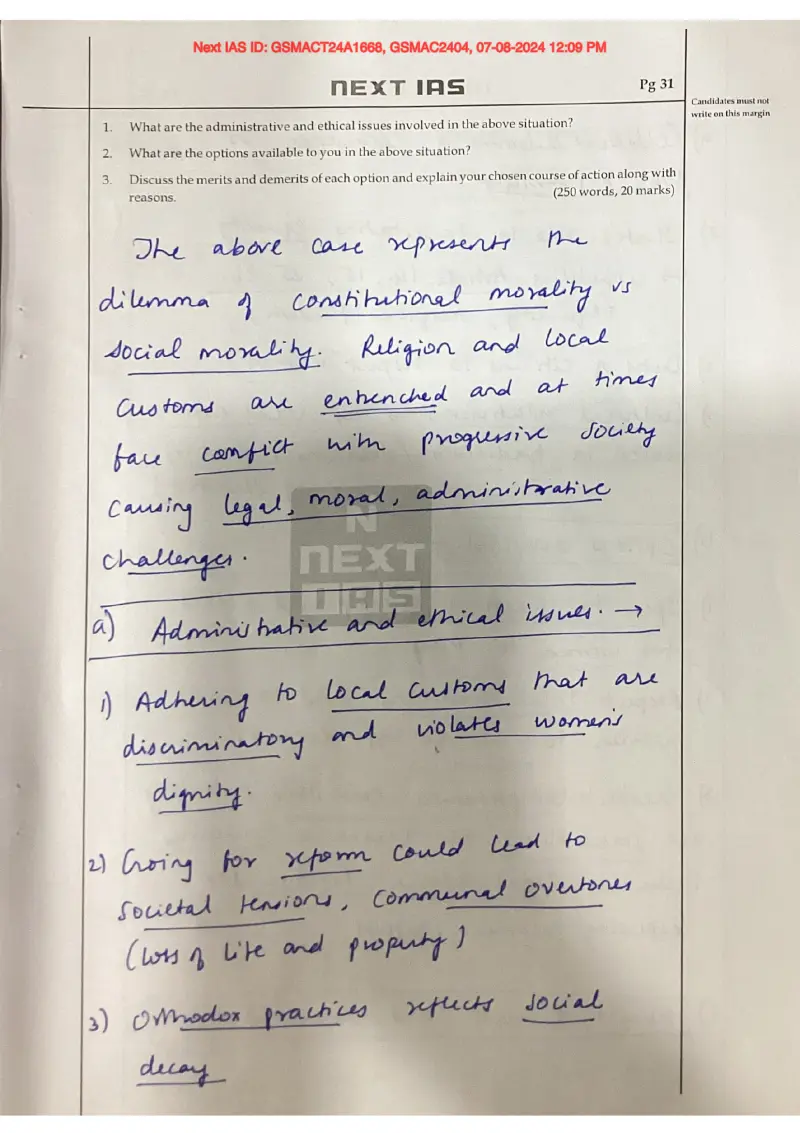 Next IAS ID: GSMACT24A1668, GSMAC2404, 07-08-2024 12:09 PM
NEXT IAS
Pg 31
Candidates must not
write on this margin
1. What are the administrative and ethical issues involved in the above situation?
2. What are the options available to you in the above situation?
3. Discuss the merits and demerits of each option and explain your chosen course of action along with
reasons. (250 words, 20 marks)
The above case represents the
dilemma of constitutional morality vs
social morality. Religion and local
customs are entrenched and at times
face confict with progressive society
causing legal, moral, administrative
challenges.
N
NEXT
IAS
a) Administrative and ethical issues. →
1) Adhering to local customs that are
discriminatory and violates women's
dignity.
2) Going for reform could lead to
societal tensions, communal overtones
(loss of life and property)
3) Orthodox practices reflects social
decay